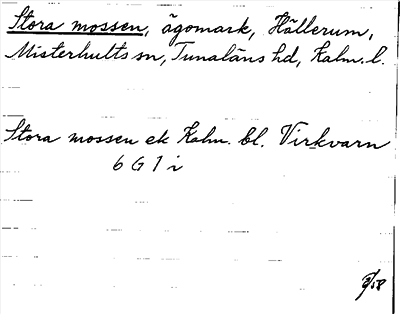 Stora mossen, ägomark, Hällerum,
Misterhults sn, Tunaläns hd, Kalm. l.
Stora mossen ek Kalm. bl. Virkvarn
6 G 1 i